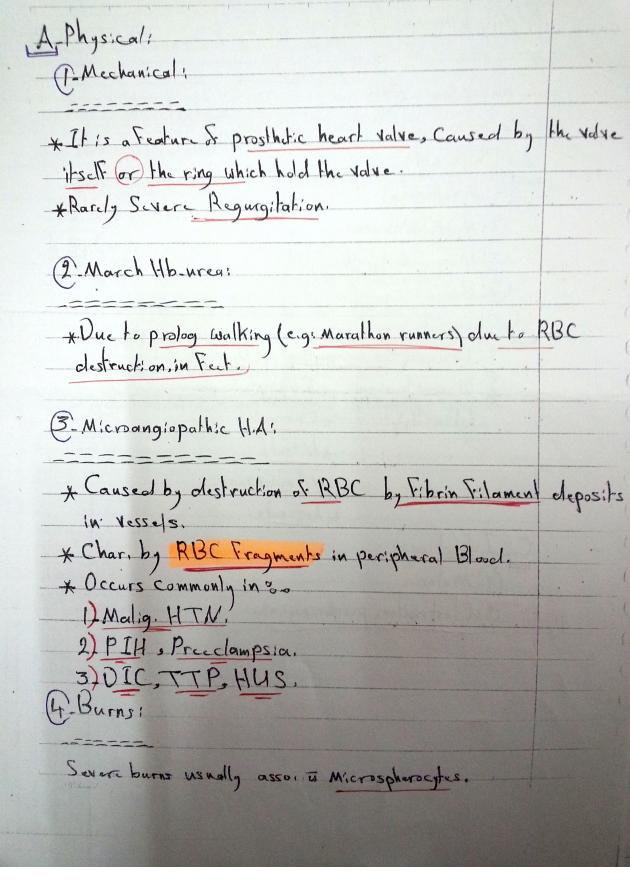 A-Physical:
1-Mechanical:
* It is a Feature of prosthetic heart valve, Caused by the valve
itself or the ring which hold the valve.
* Rarely Severe Regurgitation.
2-March Hb-urea:
* Due to prolog walking (e.g: Marathon runners) due to RBC
destruction.in Feet.
3-Microangiopathic H.A:
* Caused by destruction of RBC by Fibrin Filament deposits
in vessels.
* Char. by RBC Fragments in peripheral Blood.
* Occurs commonly in
1) Malig. HTN.
2) PIH, Preeclampsia.
3) DIC, TTP, HUS.
4-Burns:
Severe burns usually asso. c̄ Microspherocytes.